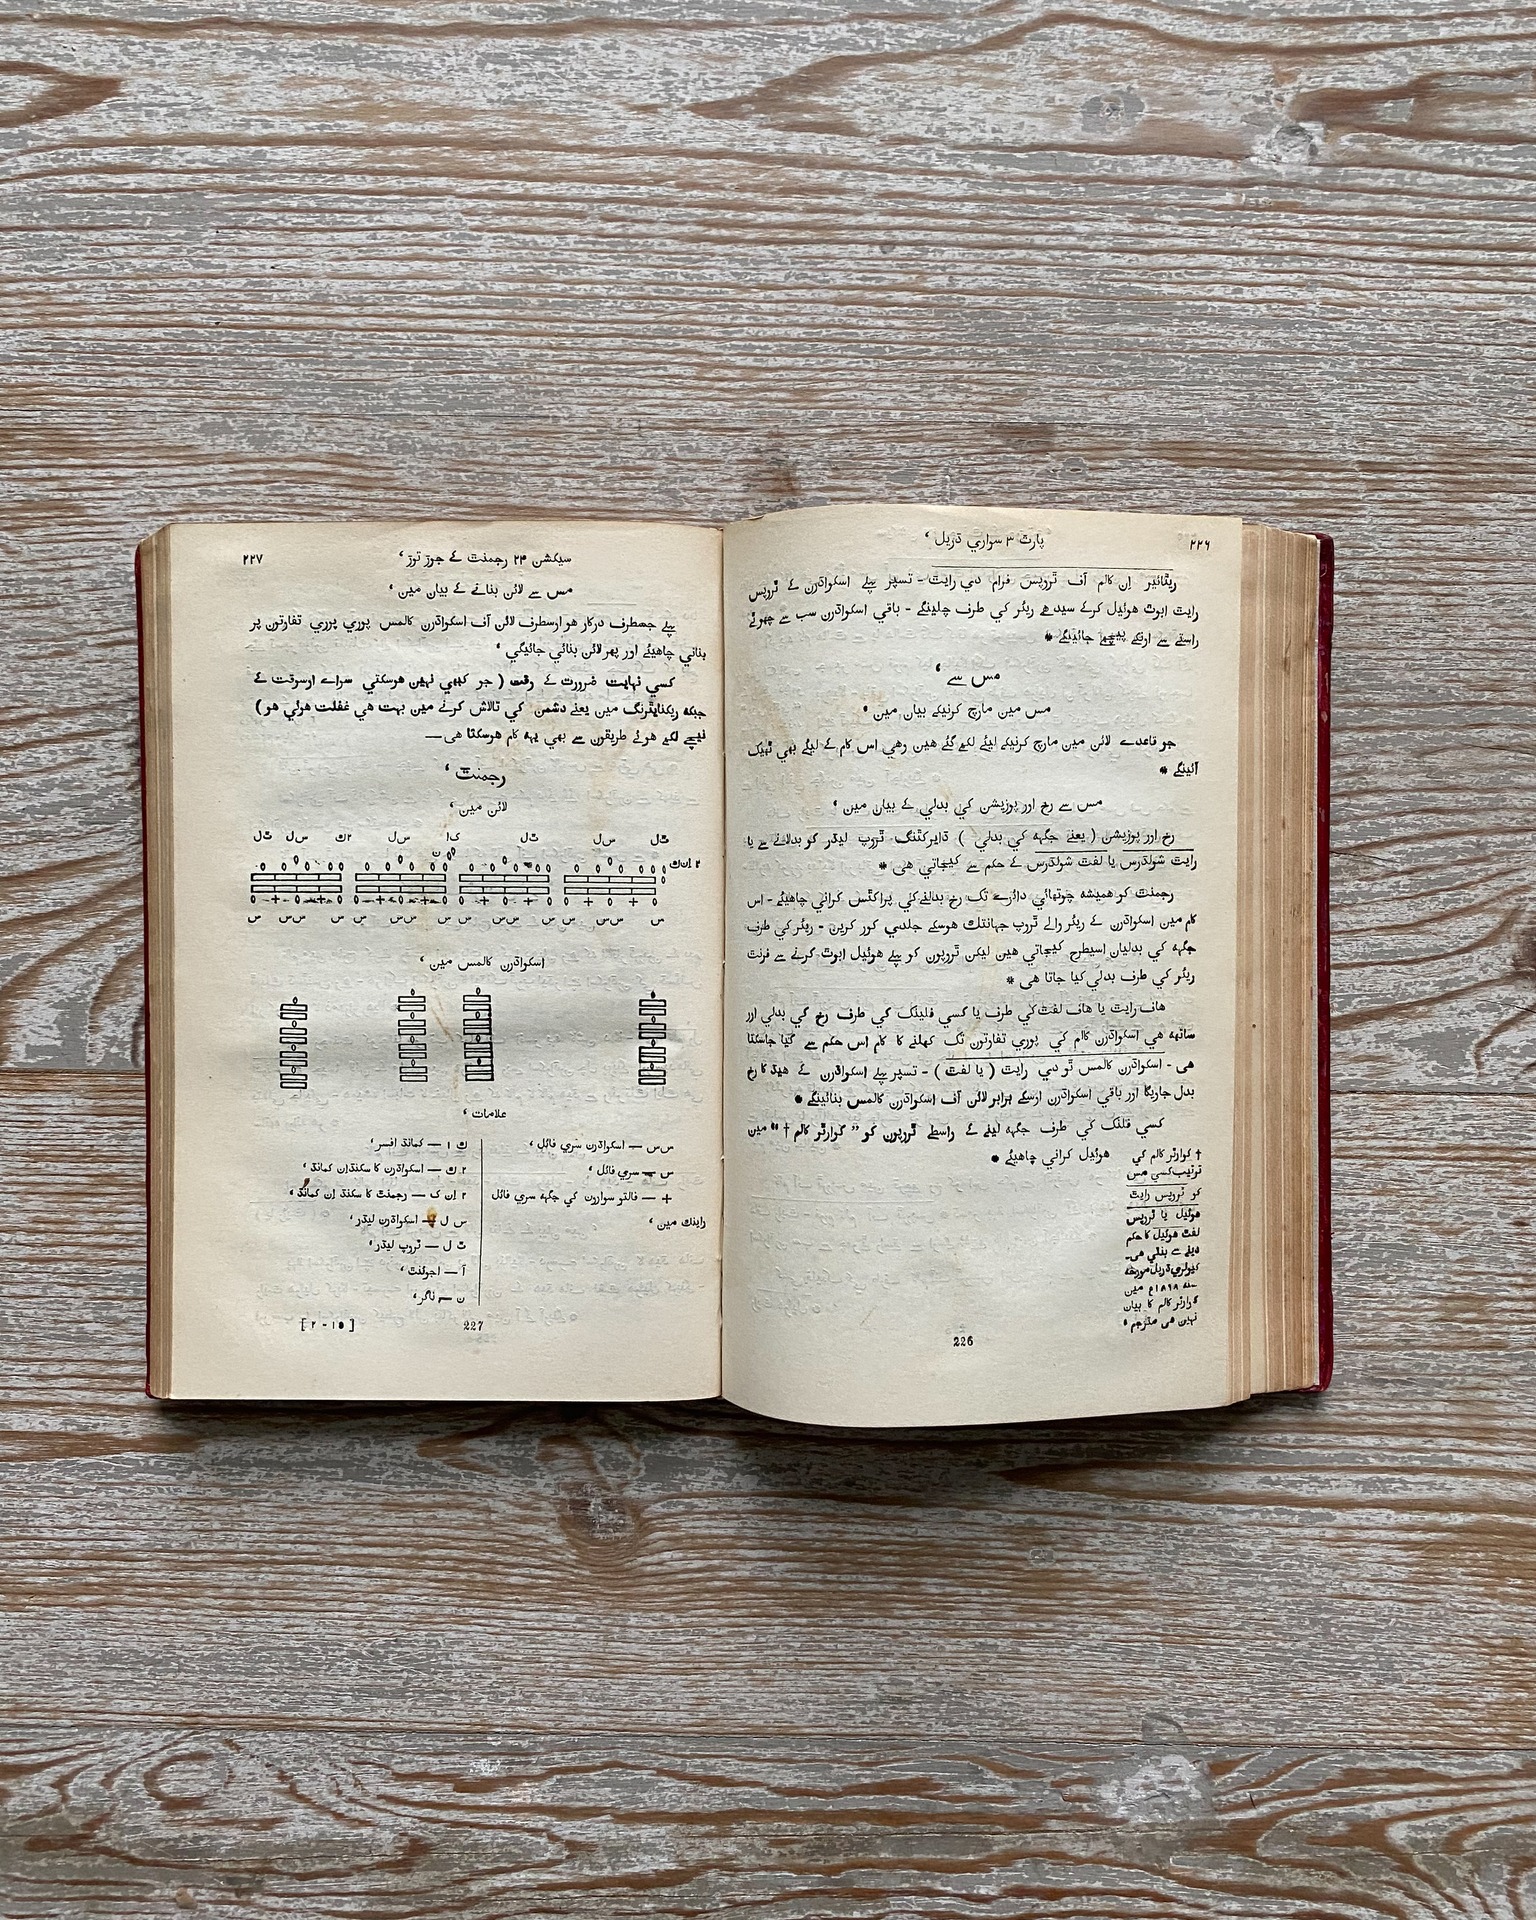 ٢٢٦
پارٹ ٣ سواري ڈريل ‘
ريٹائير اِن کالم آف ٹروپس فرام دي رايٹ - تسپر پہلے اسکواڈرن کے ٹروپس
رايٹ ابوٹ هوئيل کرکے سيدهے ريئر کي طرف چلينگے - باقي اسکواڈرن سب سے چهوٹے
راستے سے اونکے پيچهے جائينگے *
مس سے ‘
مس مين مارچ کرنيکے بيان مين •
جو قاعدے لائن مين مارچ کرنيکے ليئے لکهے گئے هين وهي اس کام کے ليئے بهي ٹهيک
آئينگے *
مس سے رخ اور پوزيشن کي بدلي کے بيان مين ‘
رخ اور پوزيشن ( يعنے جگهه کي بدلي ) ڈايرکٹنگ ٹروپ ليڈر کو بدلانے سے يا
رايٹ شولڈرس يا لفٹ شولڈرس کے حکم سے کيجاتي هی *
رجمنٹ کو هميشه چوتهائي دائرے تک رخ بدلنے کي پراکٹس کراني چاهيئے - اس
کام مين اسکواڈرن کے ريئر والے ٹروپ جهانتک هوسکے جلدي کور کرين - ريئر کي طرف
جگهه کي بدليان اسيطرح کيجاتي هين ليکن ٹروپون کو پہلے هوئيل ابوٹ کرنے سے فرنٹ
ريئر کي طرف بدلي کيا جاتا هی *
هاف رايٹ يا هاف لفٹ کي طرف يا کسي فلينک کي طرف رخ کي بدلي اور
ساتهه هي اسکواڈرن کالم کي پوري تفارتون تک کهلنے کا کام اس حکم سے کيا جاسکتا
هی - اسکواڈرن کالمس ٹو دي رايٹ ( يا لفٹ ) - تسپر پہلے اسکواڈرن کے هيڈ کا رخ
بدل جاويگا اور باقي اسکواڈرن اوسکے برابر لائن آف اسکواڈرن کالمس بنائينگے *
کسي فلنک کي طرف جگهه لينے کے واسطے ٹروپون کو ” کوارٹر کالم † “ مين
هوئيل کراني چاهيئے *
† کوارٹر کالم کي
ترتيب کسي مس
کو ٹروپس رايٹ
هوئيل يا ٹروپس
لفٹ هوئيل کا حکم
دينے سے بنتي هی -
کيولري ڈريل مورخه
سنه ١٨٩٨ع مين
کوارٹر کالم کا بيان
نهين هی مترجم •
226
سيکشن ٢۴ رجمنٹ کے جوڑ توڑ ‘
٢٢٧
مس سے لائن بنانے کے بيان مين ‘
پہلے جسطرف درکار هو اوسطرف لائن آف اسکواڈرن کالمس پوري پوري تفارتون پر
بناني چاهيئے اور پهر لائن بنائي جائيگي ‘
کسي نهايت ضرورت کے وقت ( جو کبهي نهين هوسکتي سواے اوسوقت کے
جبکه ريکنايٹرنگ مين يعنے دشمن کي تالاش کرنے مين بهت هي غفلت هوئي هو )
نيچے لکهے هوئے طريقون سے بهي يهه کام هوسکتا هی —
رجمنٹ ‘
لائن مين ‘
ٹ ل س ل ٹ ل ک ا س ل ٢ ک س ل ٹ ل
٢ اِن ک
ن
س س س س س س س س س س س س س س س س
اسکواڈرن کالمس مين ‘
علامات ‘
س س — اسکواڈرن سري فائل ‘
س — سري فائل ‘
+ — فالتو سوارون کي جگهه سري فائل
راينک مين ‘
ک ا — کمانڈ افسر ‘
٢ ک — اسکواڈرن کا سکنڈ اِن کمانڈ ‘
٢ اِن ک — رجمنٹ کا سکنڈ اِن کمانڈ ‘
س ل — اسکواڈرن ليڈر ‘
ٹ ل — ٹروپ ليڈر ‘
آ — اجوٹنٹ ‘
ن — ناگر ‘
227
[ ٢ - ١٥ ]